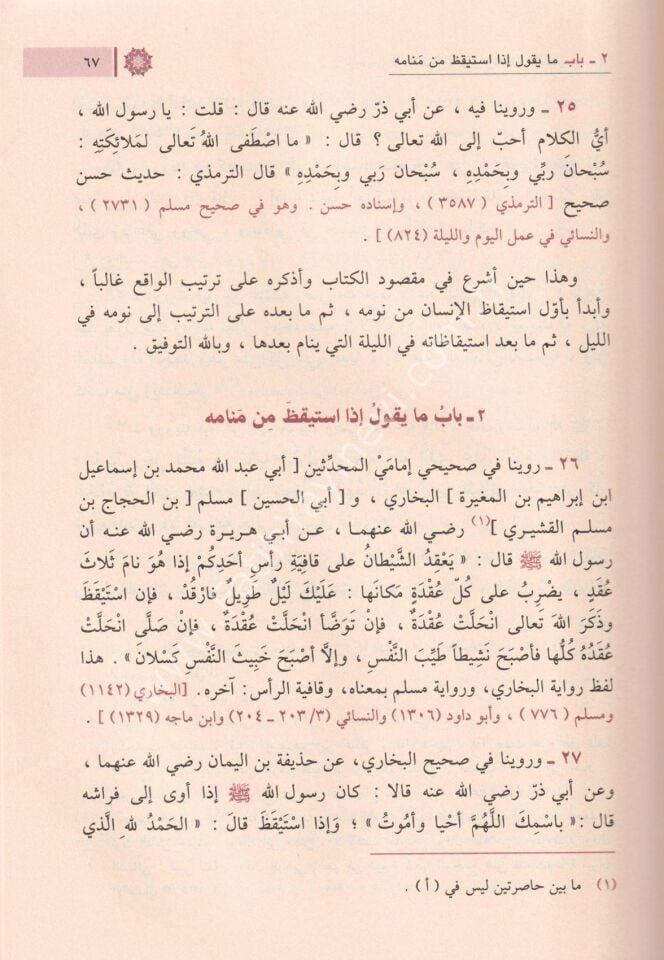 ٢ ـ باب ما يقول إذا استيقظ من مَنامه
٦٧
٢٥ ـ وروينا فيه ، عن أبي ذرّ رضي الله عنه قال : قلت : يا رسول الله ،
أيُّ الكلام أحبّ إلى الله تعالى ؟ قال : « ما اصْطَفى اللهُ تَعالى لمَلائِكَتِهِ :
سُبْحانَ ربِّي وبِحَمْدِهِ ، سُبْحان رَبي وبحَمْدِهِ » قال الترمذي : حديث حسن
صحيح [ الترمذي ( ٣٥٨٧ ) ، وإسناده حسن . وهو في صحيح مسلم ( ٢٧٣١ ) ،
والنسائي في عمل اليوم والليلة (٨٢٤) ] .
وهذا حين أشرع في مقصود الكتاب وأذكره على ترتيب الواقع غالباً ،
وأبدأ بأوّل استيقاظ الإنسان من نومه ، ثم ما بعده على الترتيب إلى نومه في
الليل ، ثم ما بعد استيقاظاته في الليلة التي ينام بعدها ، وبالله التوفيق .
٢ ـ بابُ ما يقولُ إذا استيقظَ مِن مَنامه
٢٦ ـ روينا في صحيحي إمامَيْ المحدِّثين [ أبي عبد الله محمد بن إسماعيل
ابن إبراهيم بن المغيرة ] البخاري ، و [ أبي الحسين ] مسلم [ بن الحجاج بن
مسلم القشيري ](١) رضي الله عنهما ، عن أبي هريرة رضي الله عنه أن
رسول الله ﷺ قال : « يَعْقِدُ الشَّيْطانُ على قافِيَةِ رأسِ أحَدِكُمْ إذا هُوَ نامَ ثَلاثَ
عُقَدٍ ، يضْرِبُ على كُلّ عُقْدَةٍ مَكانَها : عَلَيْكَ لَيْلٌ طَوِيلٌ فارْقُدْ ، فإن اسْتَيْقَظَ
وذَكَرَ اللهَ تعالى انحَلَّتْ عُقْدَةٌ ، فإنْ تَوَضَّأ انْحَلَّتْ عُقْدَةٌ ، فإنْ صَلَّى انْحَلَّتْ
عُقَدُهُ كُلُّها فأصْبَحَ نَشِيطاً طَيِّبَ النَّفْسِ ، وإلاَّ أصْبَحَ خَبِيثَ النَّفْسِ كَسْلانَ » . هذا
لفظ رواية البخاري، ورواية مسلم بمعناه، وقافية الرأس: آخره. [البخاري (١١٤٢)
ومسلم ( ٧٧٦ ) ، وأبو داود (١٣٠٦) والنسائي (٣/ ٢٠٣ ـ ٢٠٤) وابن ماجه (١٣٢٩) ] .
٢٧ ـ وروينا في صحيح البخاري، عن حذيفة بن اليمان رضي الله عنهما ،
وعن أبي ذرّ رضي الله عنه قالا : كان رسول الله ﷺ إذا أوى إلى فراشه
قال :« باسْمِكَ اللَّهُمَّ أحْيا وأمُوتُ » ؛ وَإذا اسْتَيْقَظَ قالَ : « الحَمْدُ للهِ الَّذي
(١) ما بين حاصرتين ليس في ( أ ) .